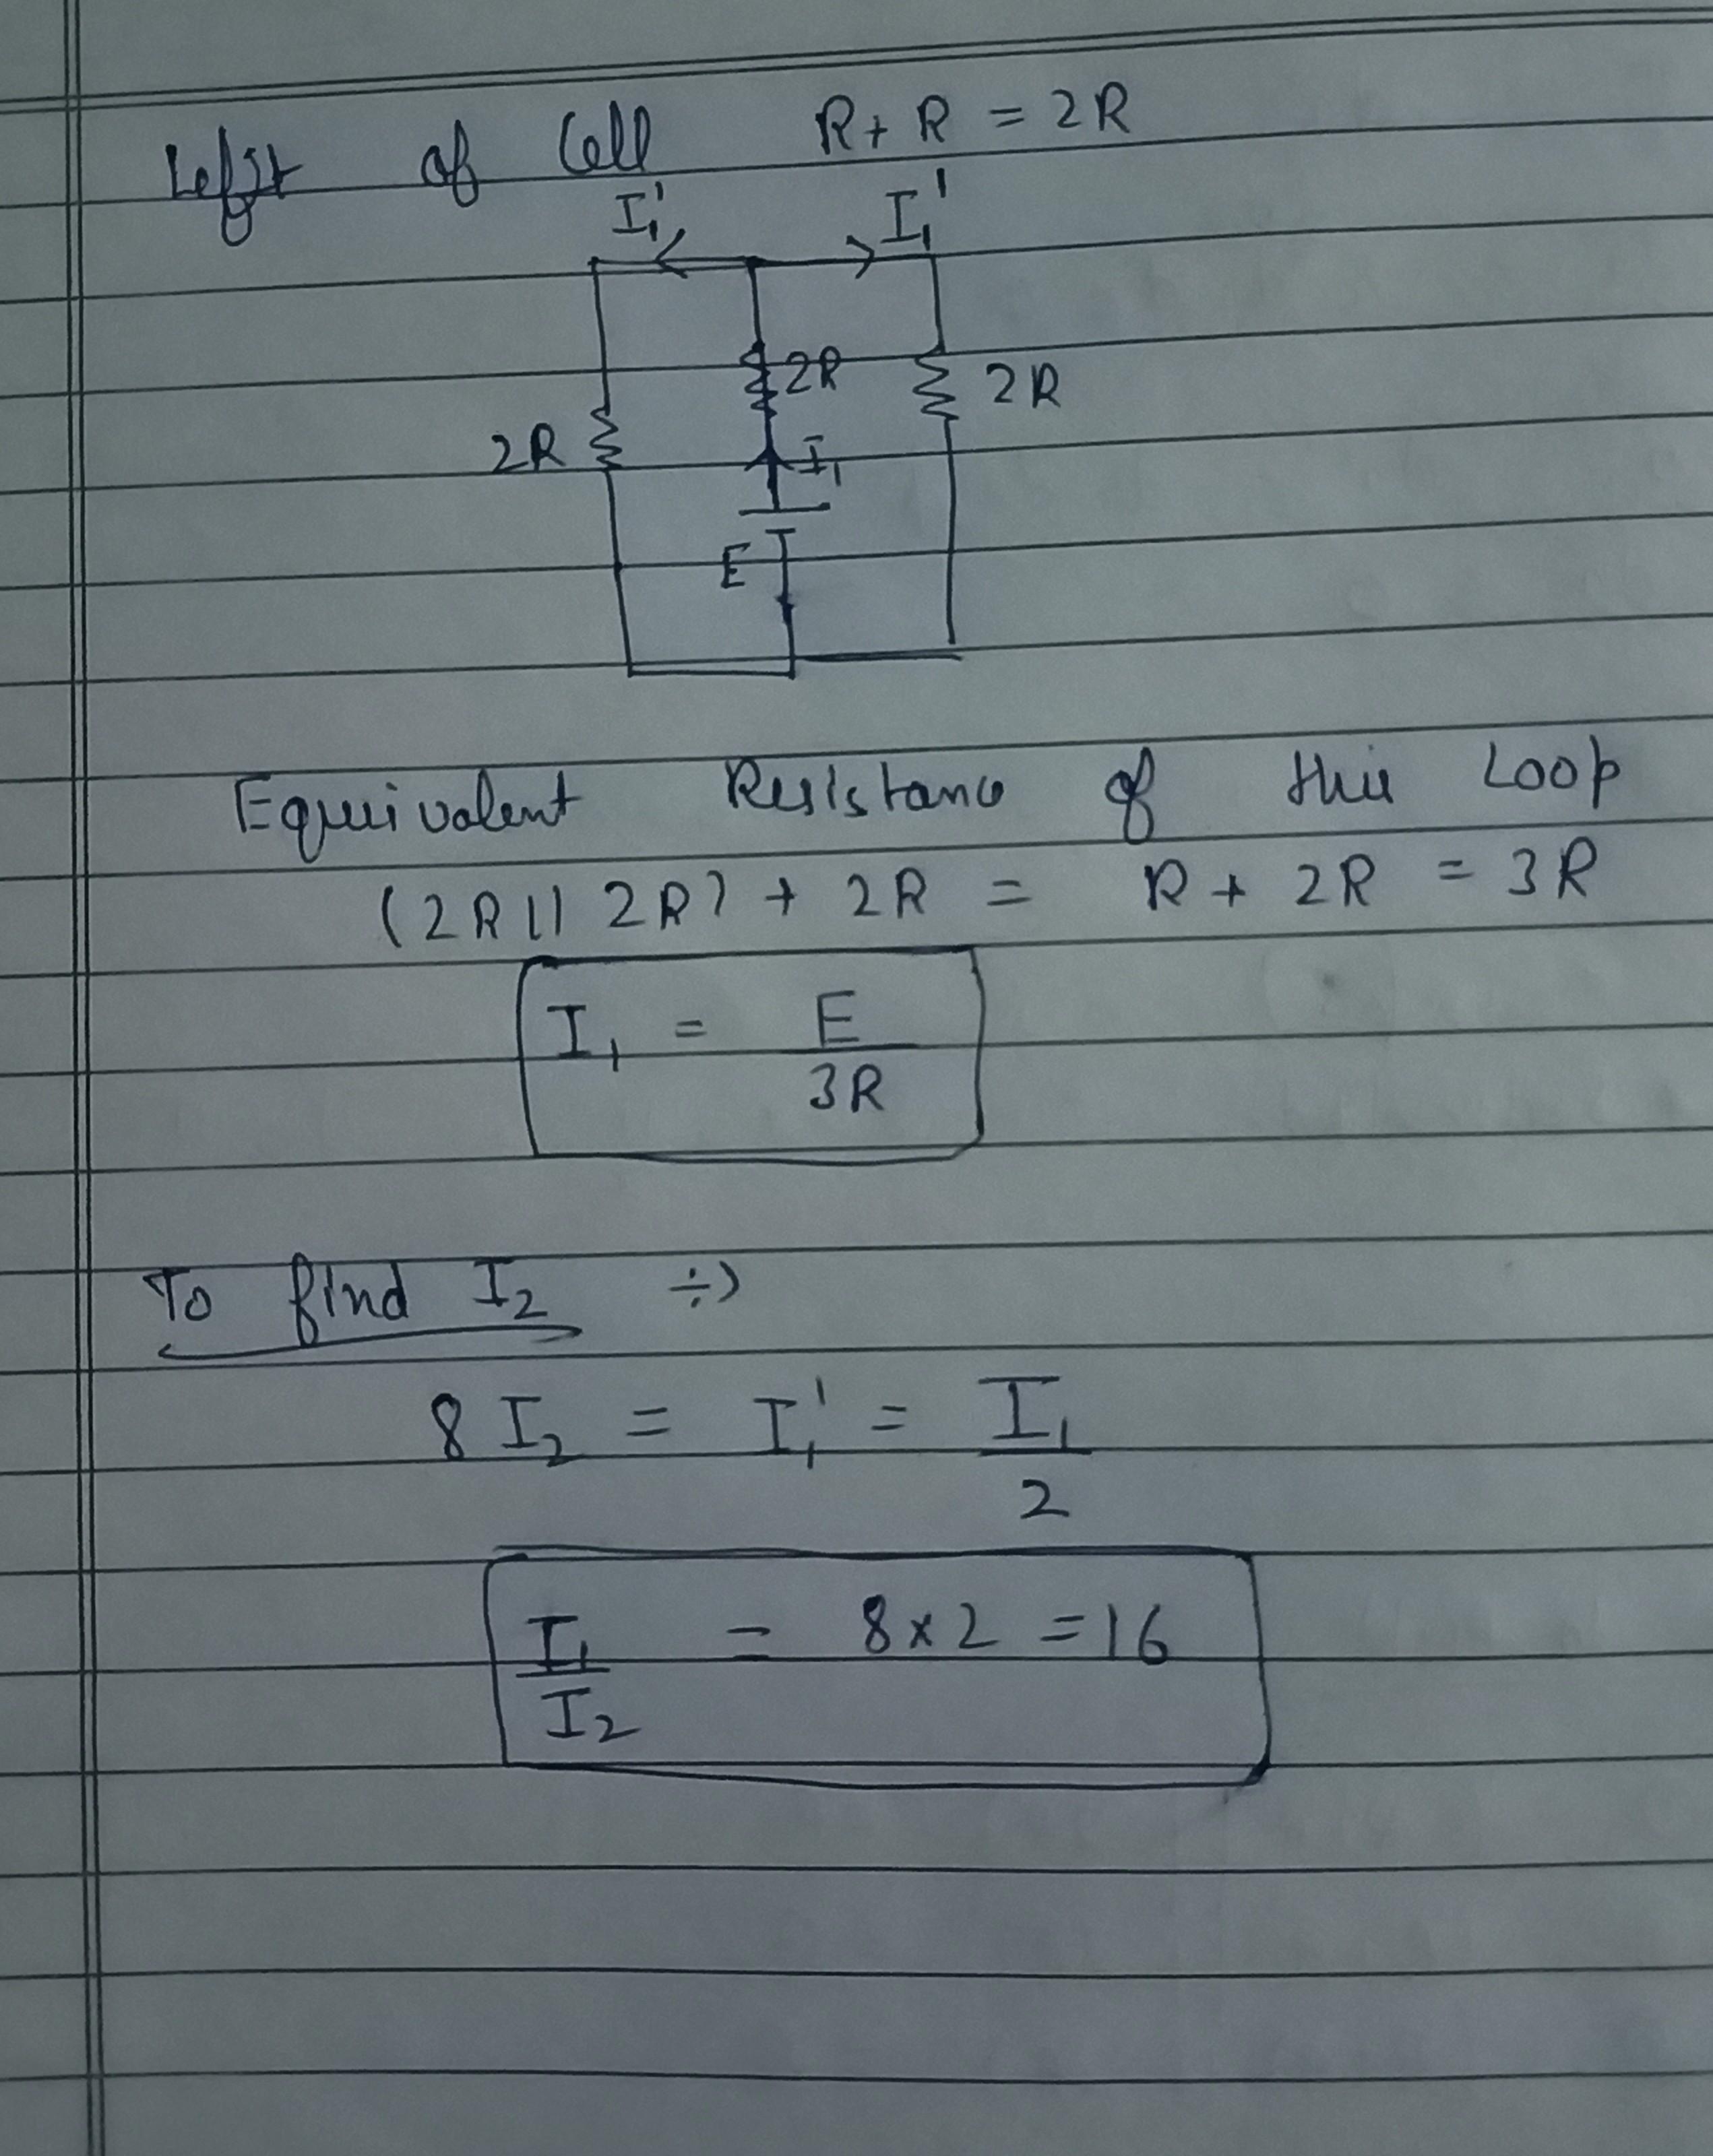 Left of Cell R + R = 2R
I₁' I₁'
2R 2R
2R I₁
E
Equivalent Resistance of this Loop
(2R || 2R) + 2R = R + 2R = 3R
I₁ = E
3R
To find I₂ ÷)
8 I₂ = I₁' = I₁
2
I₁ = 8 x 2 = 16
I₂